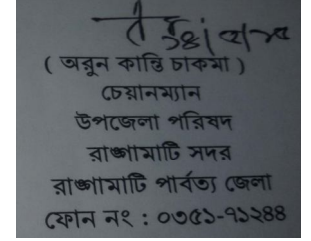 ( অরুন কান্তি চাকমা )
চেয়ারম্যান
উপজেলা পরিষদ
রাঙ্গামাটি সদর
রাঙ্গামাটি পার্বত্য জেলা
ফোন নং : ০৩৫১-৭১২৪৪